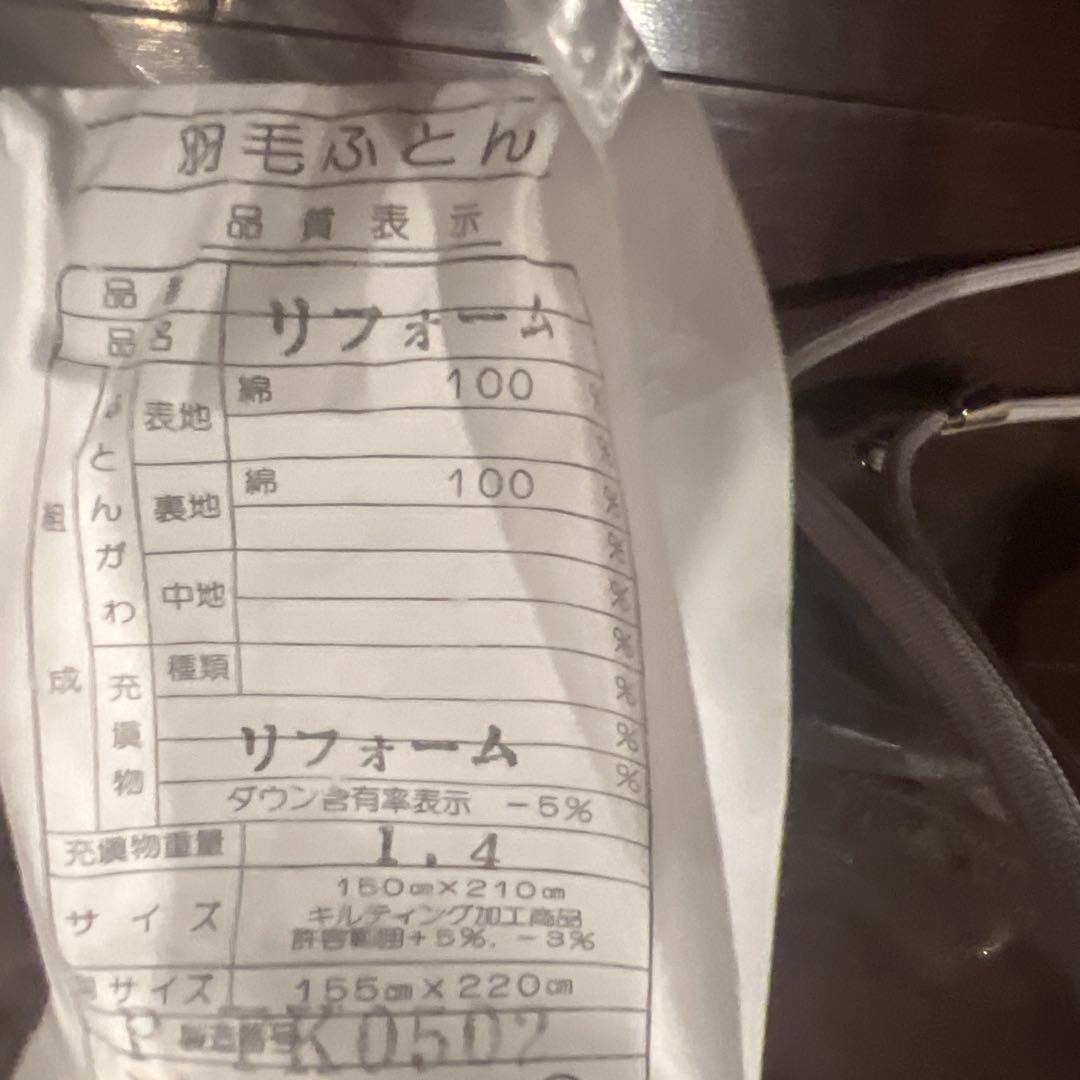 羽毛ふとん
品質表示
品
品名
リフォーム
組成
ふとんがわ
表地 綿 100 %
%
裏地 綿 100 %
%
中地 %
%
充填物
種類 %
リフォーム %
%
ダウン含有率表示 -5%
充填物重量 1.4
サイズ
150cm×210cm
キルティング加工商品
許容範囲+5%.-3%
サイズ 155cm×220cm
製造番号
P TK0502